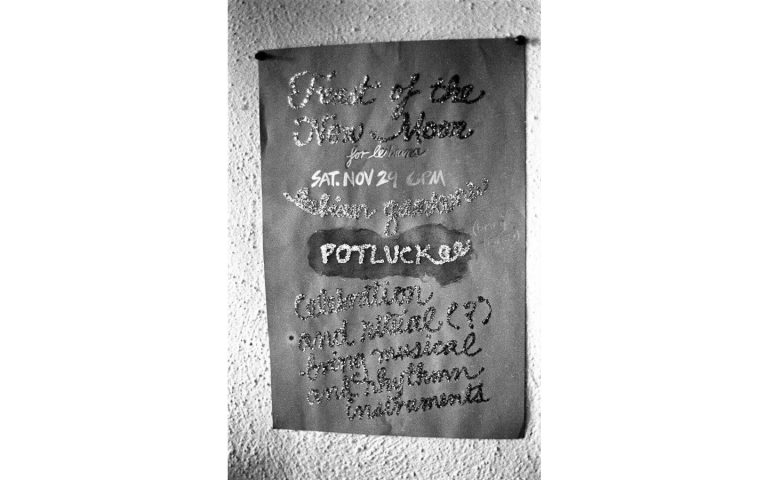 Feast of the
New Moon
for
SAT. NOV 29 6PM
POTLUCK
Celebration
and ritual (?)
bring musical
and rhythmn
instruments